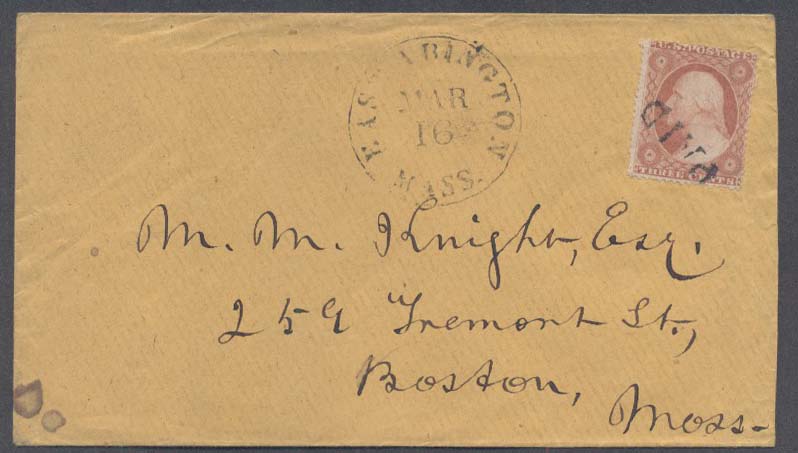 EAST ABINGTON
MAR
16
MASS.
U.S. POSTAGE
PAID
THREE CENTS
M. M. Knight, Esq.
259 Tremont St.,
Boston,
Mass.